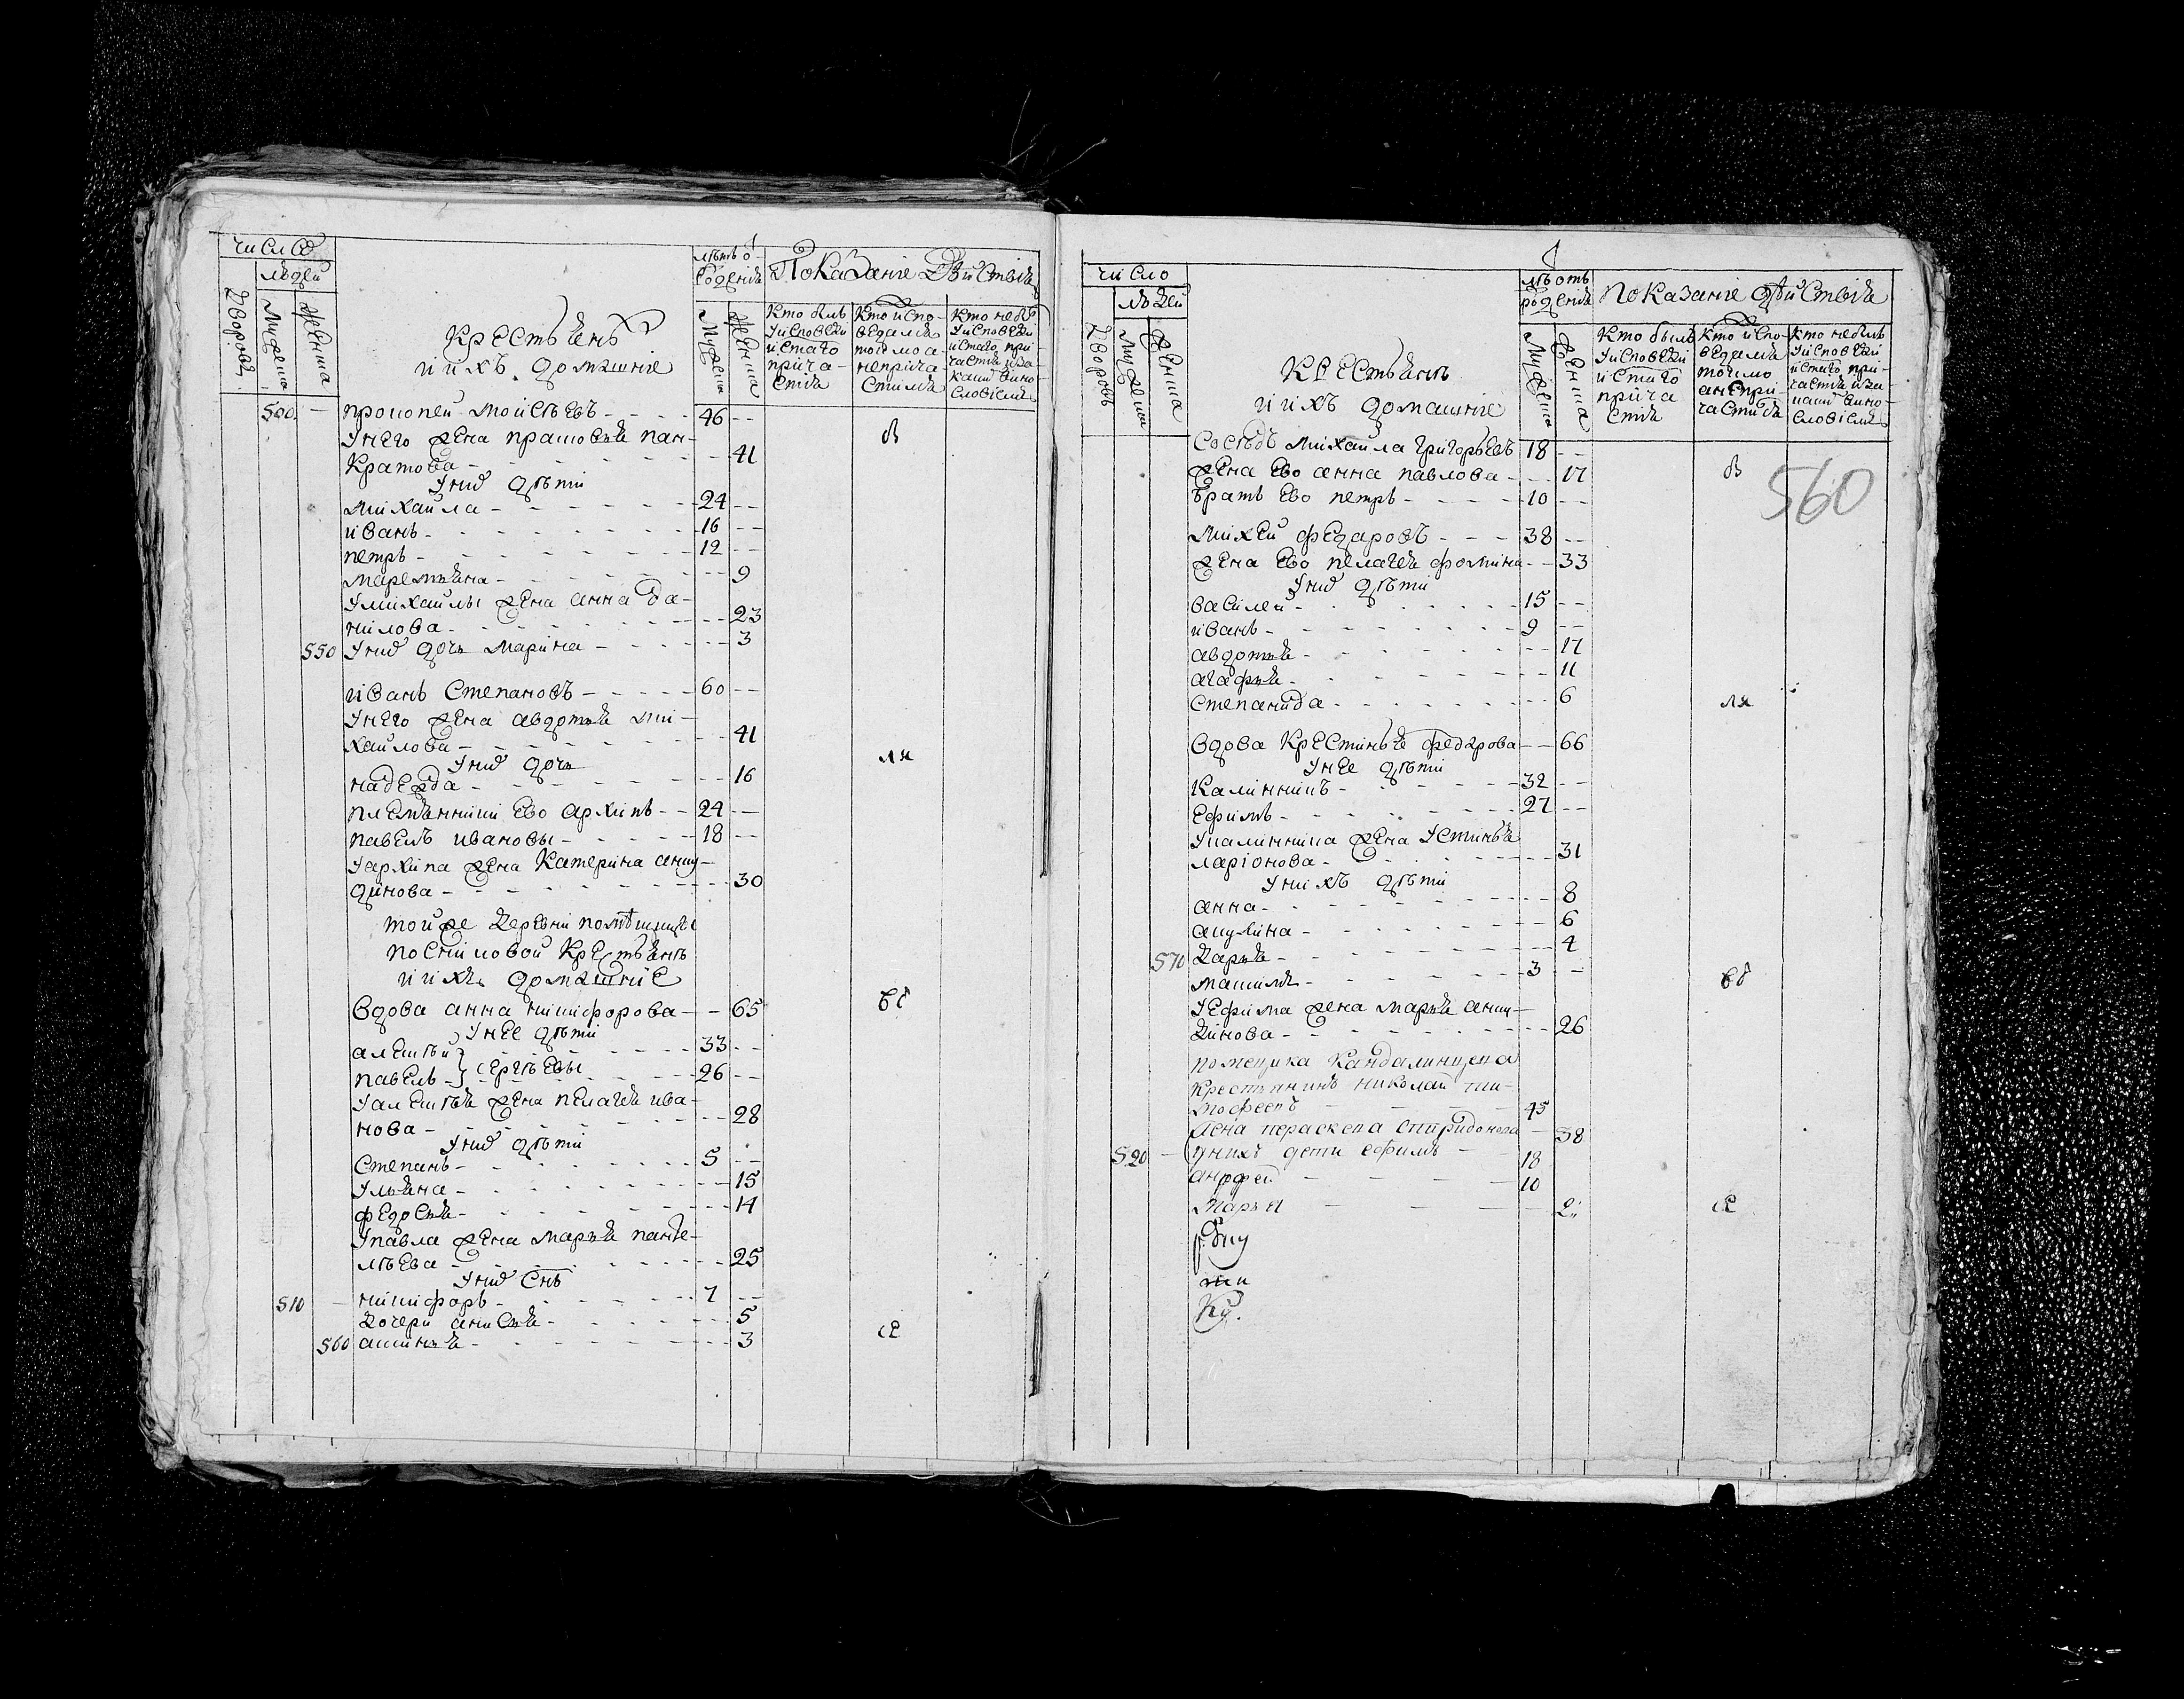 число
людей
дворовъ
мужеска
женска
крестьянъ
и ихъ домашние
лѣтъ о
рождения
мужеска
женска
Показание действия
Кто былъ
у исповеди
и стаго
прича
стия
Кто испо-
ведался
токмо а
неприча
стился
Кто не бы
у исповеди
и стаго при
частия и за
каким вино
словиемъ
500 прокопей моисѣевъ 46
у него жена прасковья пан-
кратова 41
у нихъ дѣти
михайла 24
иванъ 16
петръ 12
маремьяна 9
у михайлы жена анна да-
нилова 23
550 у нихъ дочь марина 3
иванъ степановъ 60
у него жена авдотья ми-
хайлова 41
у нихъ дочь
надежда 16
племянники ево архипъ 24
павелъ ивановы 18
у архипа жена катерина аки-
динова 30
той же деревни помѣщицы
крестьянъ
и ихъ домашние
вдова анна никифорова 65
у нее дѣти
алексѣй 33
павелъ сергѣевы 26
у алексѣя жена пелагея ива-
нова 28
у нихъ дѣти
степанъ 5
ульяна 15
федосья 14
у павла жена марья панте-
лѣева 25
у нихъ снъ
510 никифоръ 7
дочери анисья 5
560 аксинья 3
в
ля
се
число
людей
дворовъ
мужеска
женска
крестьянъ
и ихъ домашние
лѣ отъ
рождения
мужеска
женска
показание действия
Кто былъ
у исповеди
и стаго
прича
стия
Кто испо
ведался
токмо
а не при
частился
Кто не былъ
у исповеди
и стаго при
частия и за
каким вино
словиемъ
560
сосѣдъ михайла григорьевъ 18
жена ево анна павлова 17
братъ ево петръ 10
михей федаровъ 38
жена ево пелагея фомина 33
у нихъ дѣти
василей 15
иванъ 9
авдотья 17
агафья 11
степанида 6
вдова крестинья федарова 66
у нее дѣти
калинникъ 32
ефимъ 27
у калинника жена устинья
ларионова 31
у нихъ дѣти
анна 8
акулина 6
570 дарья 4
максимъ 3
у ефима жена марья аки-
динова 26
помещика
крестьянинъ николай тим-
мофеевъ 45
жена параскева спиридонова 38
520 у нихъ дети ефимъ 18
10
марья
в
ля
се